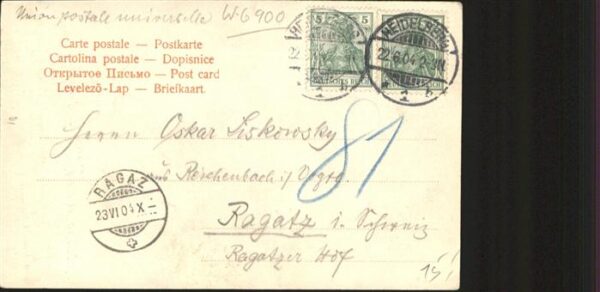 Union postale universelle W-6900
Carte postale — Postkarte
Cartolina postale — Dopisnice
Открытое Письмо — Post card
Levelező-Lap — Briefkaart.
5 5
HEIDELBERG
22.6.04
1
Herrn Oskar Liskowsky
aus Reichenbach i/ Vogtl.
81
Ragatz i. Schweiz
Ragatzer Hof
RAGAZ
23.VI.04.X